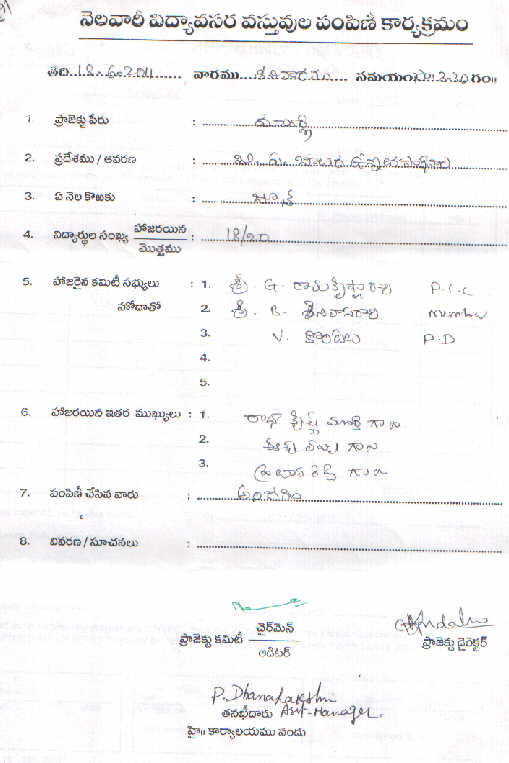 నెలవారీ విద్యావసర వస్తువుల పంపిణీ కార్యక్రమం
తేది.18.6.2011...... వారము...శనివారము.... సమయం 2-30 గం॥
1. ప్రాజెక్టు పేరు :
2. ప్రదేశము / ఆవరణ :
3. ఏ నెల కొఱకు : జూన్
4. విద్యార్థుల సంఖ్య హాజరయిన / మొత్తము : 18/20
5. హాజరైన కమిటీ సభ్యులు : 1. శ్రీ. G. రామకృష్ణ P.L.C
సహోదాతో 2. శ్రీ. B. శ్రీనివాసరావు member
3. V. P.D
4.
5.
6. హాజరయిన ఇతర ముఖ్యులు : 1. రాధా కృష్ణ మూర్తి గారు
2. గారు
3. గారు
7. పంపిణీ చేసిన వారు :
8. వివరణ / సూచనలు :
చైర్‌మెన్
ప్రాజెక్టు కమిటీ
ఆడిటర్
ప్రాజెక్టు డైరెక్టర్
P. Dhanalakshmi
తనఖీదారు Asst-Manager.
హై॥ కార్యాలయము వండు